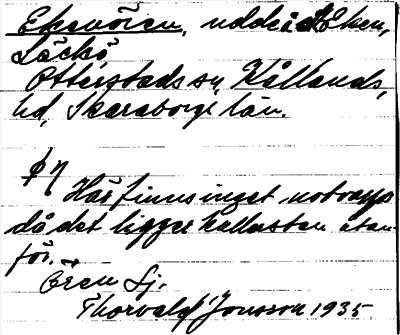 Ekenören, udde i Eken,
Läckö,
Otterstads sn, Kållands
hd, Skaraborgs län.
Här finns inget notvarp
då det ligger kallasten utan
för.
Ören Sj.
Thorvald Jonsson 1935